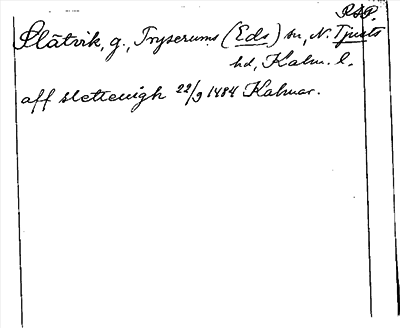 RSP.
Slätvik, g., Tryserums (Eds) sn, N. Tjusts
hd, Kalm. l.
aff slettewigh 22/9 1484 Kalmar.